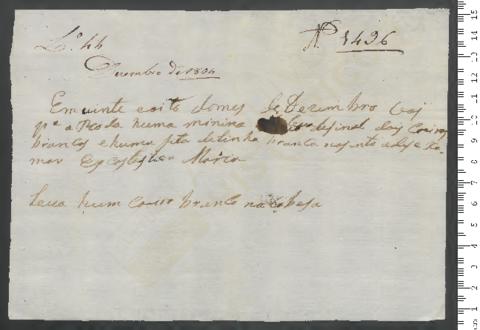 L.º 44
N.º 1496
Dezembro de 1804
Em vinte e oito do mes de Dezembro Vai
p.ª a Roda huma minina de sinal dois Coeiros
brancos e huma fita de linha branca no sinto e dese xa
mar Maria
Leva hum Coeiro branco na cabesa